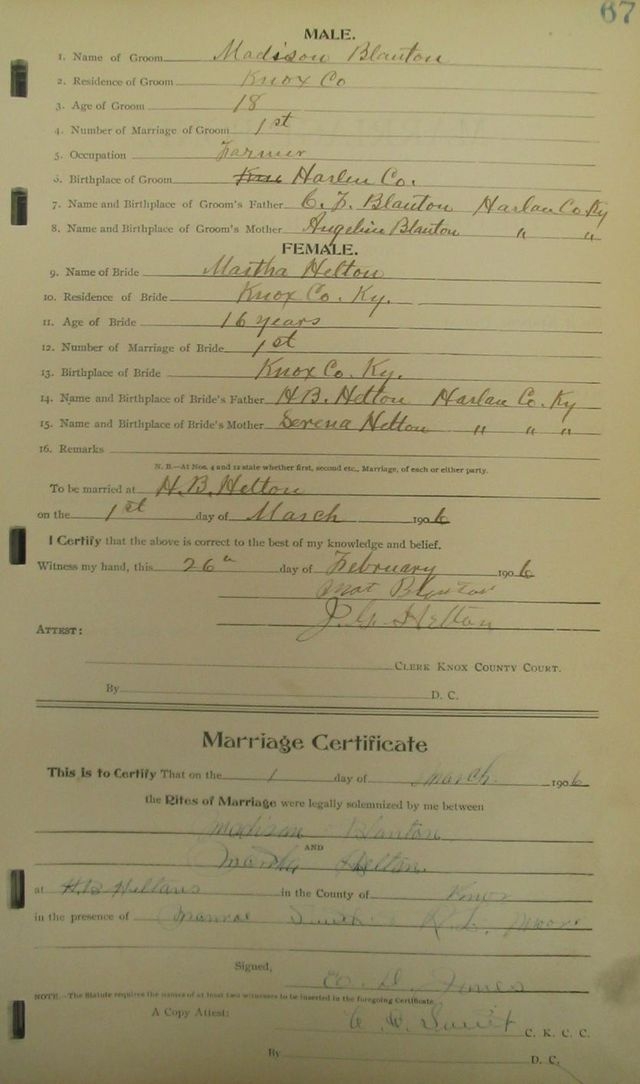 67
MALE.
1. Name of Groom Madison Blanton
2. Residence of Groom Knox Co
3. Age of Groom 18
4. Number of Marriage of Groom 1st
5. Occupation Farmer
6. Birthplace of Groom Knox Harlen Co.
7. Name and Birthplace of Groom's Father C. F. Blanton Harlan Co Ky
8. Name and Birthplace of Groom's Mother Angeline Blanton " "
FEMALE.
9. Name of Bride Martha Helton
10. Residence of Bride Knox Co. Ky.
11. Age of Bride 16 years
12. Number of Marriage of Bride 1st
13. Birthplace of Bride Knox Co. Ky.
14. Name and Birthplace of Bride's Father H.B. Helton Harlan Co. Ky
15. Name and Birthplace of Bride's Mother Serena Helton " " "
16. Remarks
N. B.—At Nos. 4 and 12 state whether first, second etc., Marriage, of each or either party.
To be married at H.B. Helton
on the 1st day of March 1906
I Certify that the above is correct to the best of my knowledge and belief.
Witness my hand, this 26th day of February 1906
Mat Blanton
J. G. Helton
ATTEST:
CLERK KNOX COUNTY COURT.
By D. C.
Marriage Certificate
This is to Certify That on the 1 day of March 1906
the Rites of Marriage were legally solemnized by me between
Madison Blanton
AND
Martha Helton
at H.B Heltons in the County of Knox
in the presence of Monroe Moore
Signed,
NOTE.—The Statute requires the names of at least two witnesses to be inserted in the foregoing Certificate.
A Copy Attest: C. K. C. C.
By D. C.